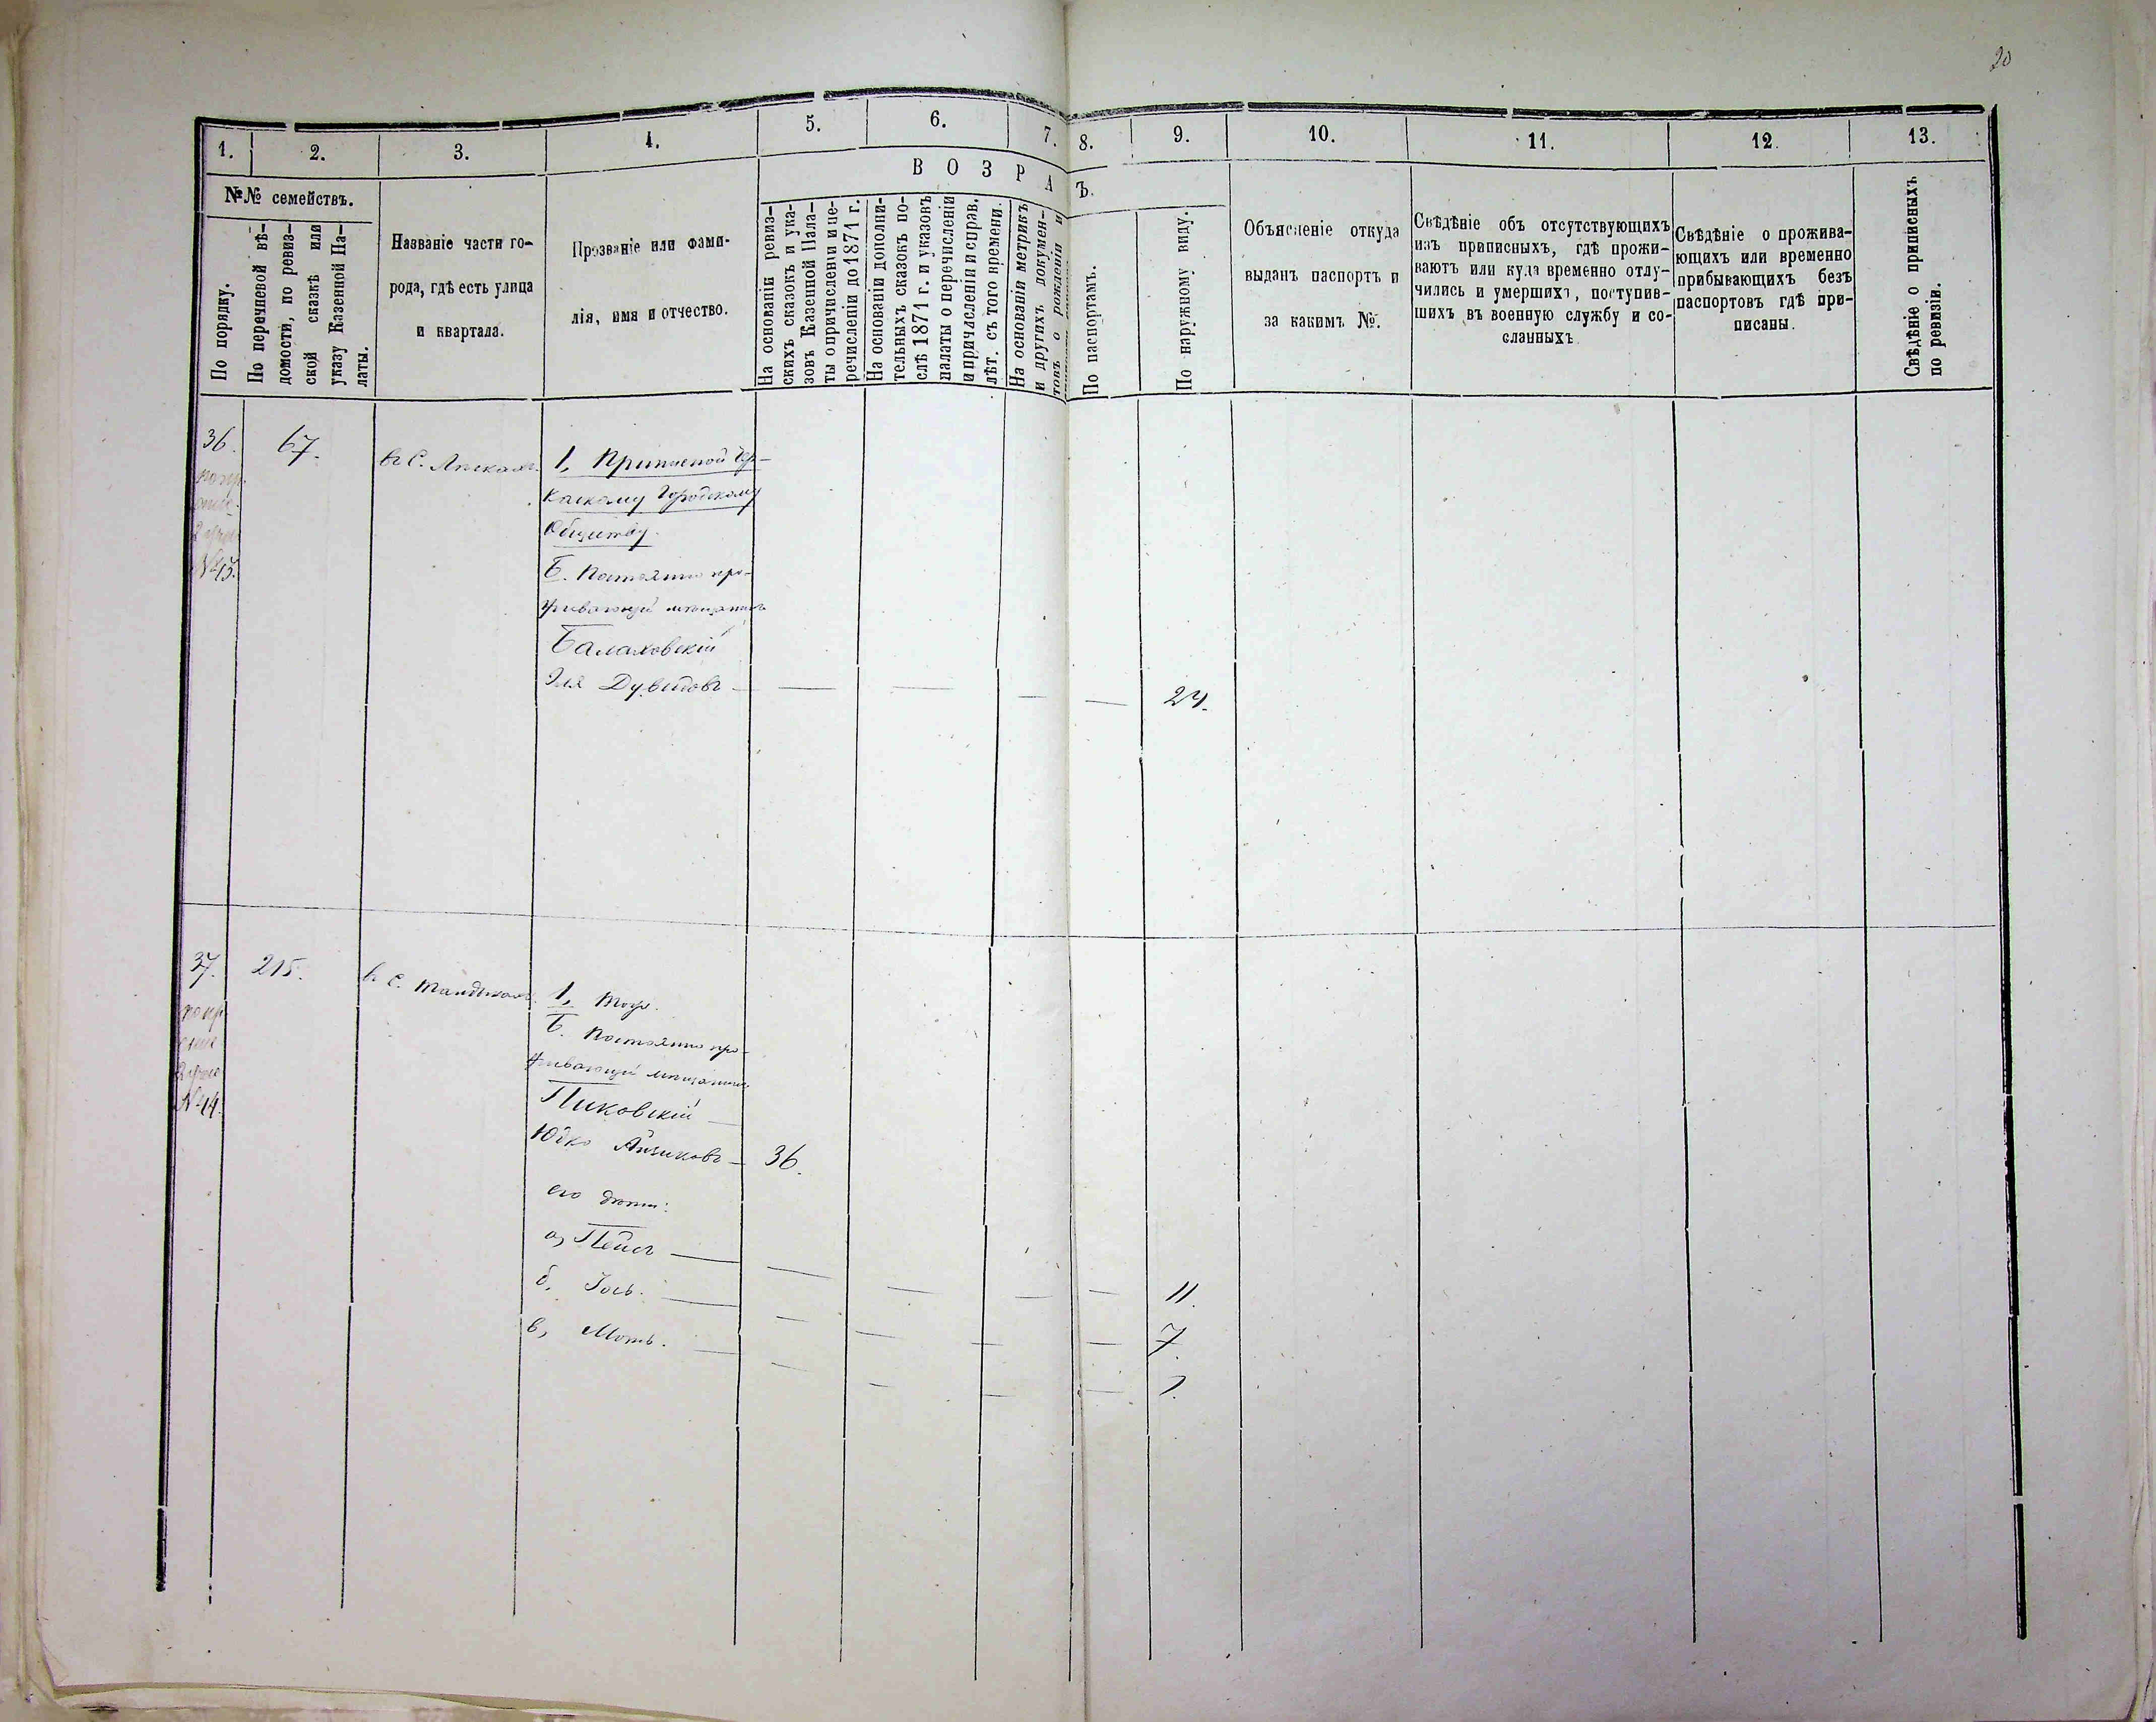 20
1.
2.
3.
4.
5.
6.
7.
8.
9.
10.
11.
12.
13.
№№ семействъ.
По порядку.
По перечневой вѣ-
домости, по ревиз-
ской сказкѣ или
указу Казенной Па-
латы.
Названіе части го-
рода, гдѣ есть улица
и квартала.
Прозваніе или фами-
лія, имя и отчество.
ВОЗРА
Ъ.
На основаніи ревиз-
скихъ сказокъ и ука-
зовъ Казенной Пала-
ты о причисленіи и пе-
речисленіи до 1871 г.
На основаніи дополни-
тельныхъ сказокъ по-
слѣ 1871 г. и указовъ
палаты о перечисленіи
и причисленіи и справ.
лѣт. съ того времени.
На основаніи метрикъ
и другихъ докумен-
товъ о рожденіи и
По паспортамъ.
По наружному виду.
Объясненіе откуда
выданъ паспортъ и
за какимъ №.
Свѣдѣніе объ отсутствующихъ
изъ приписныхъ, гдѣ прожи-
ваютъ или куда временно отлу-
чились и умершихъ, поступив-
шихъ въ военную службу и со-
сланныхъ.
Свѣдѣніе о прожива-
ющихъ или временно
прибывающихъ безъ
паспортовъ гдѣ при-
писаны.
Свѣдѣніе о приписныхъ
по ревизіи.
36.
67.
въ С.
1, Приписной
Городскому
Обществу.
Б. Постоянно про-
живающій мѣщанинъ
Балаховскій
Эля Дувидовъ
24.
37.
215.
въ С.
1, Тоже.
Б. Постоянно про-
живающій мѣщанинъ
Пиковскій
Юдко Айзиковъ
36.
его дѣти:
а, Пейсъ
11.
б, Іось.
7.
в, Моть.